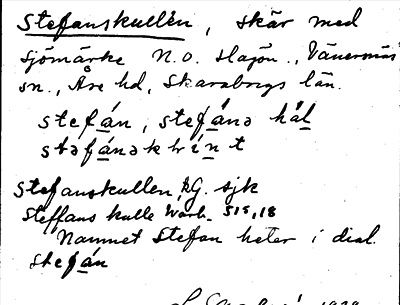 Stefanskullen, skär med
sjömärke N.O. Hajön, Vänersnäs
sn., Åse hd, Skaraborgs län.
stefán, stefánə hál
stəfánəkrínt
Stefanskullen, RG. sjk
Steffans kulle Warb. 515, 18
Namnet Stefan heter i dial.
stefán